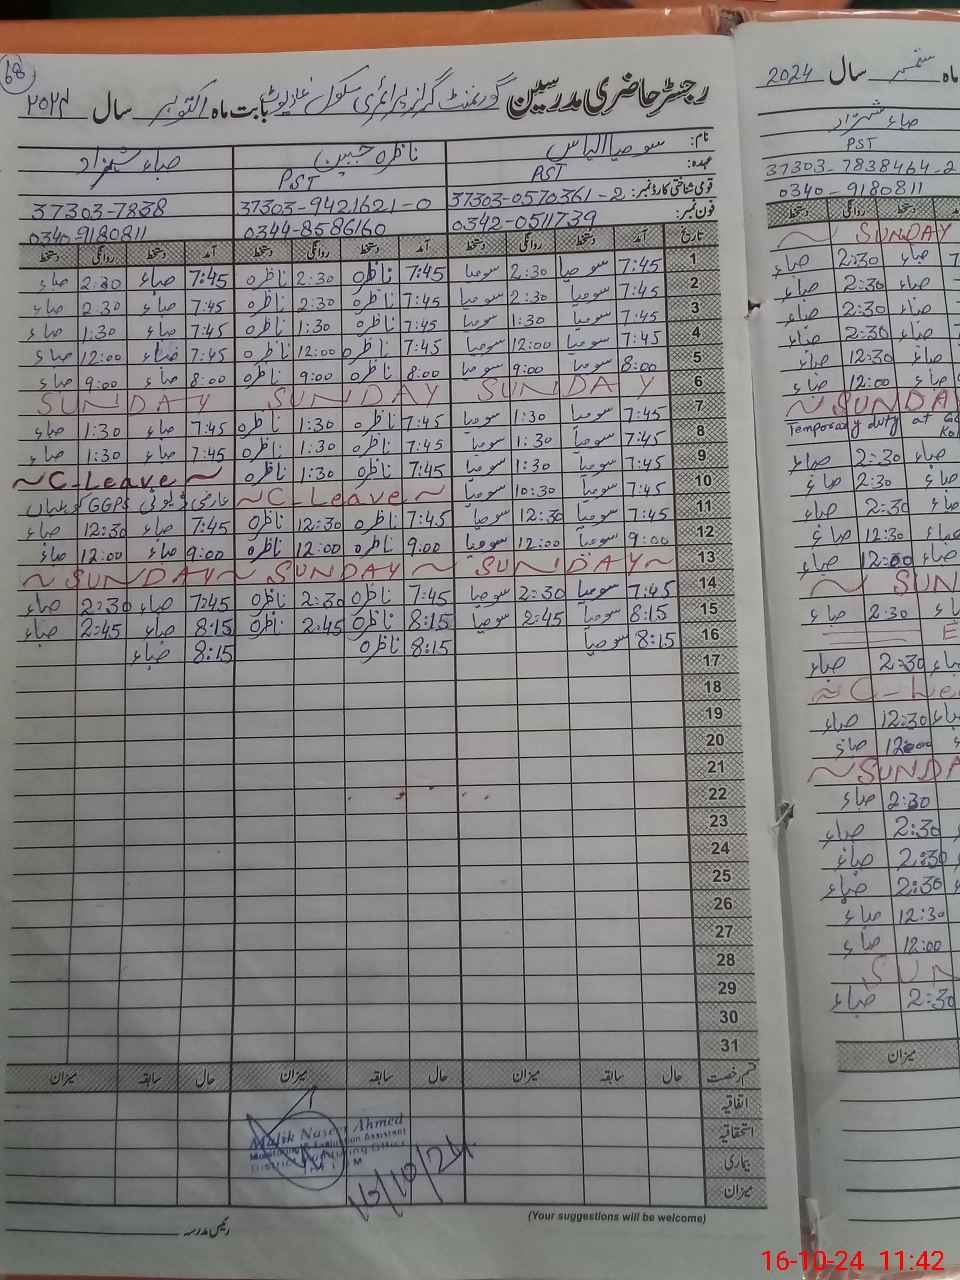 68
رجسٹر حاضری مدرسین گورنمنٹ گرلز پرائمری سکول بابت ماہ اکتوبر سال ۲۰۲۴
نام: سومیا الیاس ناظرہ جبین صباء شہزاد
عہدہ: PST PST
قومی شناختی کارڈ نمبر: 37303-0570361-2 37303-9421621-0 37303-7838
فون نمبر: 0342-0511739 0344-8586160 0340-9180811
تاریخ آمد دستخط روانگی دستخط آمد دستخط روانگی دستخط آمد دستخط روانگی دستخط
1 7:45 سومیا 2:30 سومیا 7:45 ناظرہ 2:30 ناظرہ 7:45 صباء 2:30 صباء
2 7:45 سومیا 2:30 سومیا 7:45 ناظرہ 2:30 ناظرہ 7:45 صباء 2:30 صباء
3 7:45 سومیا 1:30 سومیا 7:45 ناظرہ 1:30 ناظرہ 7:45 صباء 1:30 صباء
4 7:45 سومیا 12:00 سومیا 7:45 ناظرہ 12:00 ناظرہ 7:45 صباء 12:00 صباء
5 8:00 سومیا 9:00 سومیا 8:00 ناظرہ 9:00 ناظرہ 8:00 صباء 9:00 صباء
6 SUNDAY SUNDAY SUNDAY
7 7:45 سومیا 1:30 سومیا 7:45 ناظرہ 1:30 ناظرہ 7:45 صباء 1:30 صباء
8 7:45 سومیا 1:30 سومیا 7:45 ناظرہ 1:30 ناظرہ 7:45 صباء 1:30 صباء
9 7:45 سومیا 1:30 سومیا 7:45 ناظرہ 1:30 ناظرہ ~C-Leave~
10 7:45 سومیا 10:30 سومیا ~C-Leave~ عارضی ڈیوٹی GGPS
11 7:45 سومیا 12:30 سومیا 7:45 ناظرہ 12:30 ناظرہ 7:45 صباء 12:30 صباء
12 9:00 سومیا 12:00 سومیا 9:00 ناظرہ 12:00 ناظرہ 9:00 صباء 12:00 صباء
13 ~SUNDAY~ SUNDAY ~ SUNDAY~
14 7:45 سومیا 2:30 سومیا 7:45 ناظرہ 2:30 ناظرہ 7:45 صباء 2:30 صباء
15 8:15 سومیا 2:45 سومیا 8:15 ناظرہ 2:45 ناظرہ 8:15 صباء 2:45 صباء
16 8:15 سومیا 8:15 ناظرہ 8:15 صباء
17
18
19
20
21
22
23
24
25
26
27
28
29
30
31
قسم رخصت حال سابقہ میزان حال سابقہ میزان حال سابقہ میزان
اتفاقیہ
استحقاقیہ
بیماری
میزان
Malik Naseer Ahmed
Monitoring & Evaluation Assistant
District Monitoring Office
16/10/24
(Your suggestions will be welcome)
رئیس مدرسہ
ماہ ستمبر سال 2024
صباء شہزاد
PST
37303-7838464-2
0340-9180811
دستخط روانگی دستخط
~ SUNDAY
صباء 2:30 صباء
صباء 2:30 صباء
صباء 2:30 صباء
صباء 2:30 صباء
صباء 12:30 صباء
صباء 12:00 صباء
~SUNDAY
Temporary duty at
صباء 2:30 صباء
صباء 2:30
صباء 2:30
صباء 12:30 صباء
صباء 12:00 صباء
~ SUN
صباء 2:30
E
صباء 2:30 صباء
~C-Lea
صباء 12:30 صباء
صباء 12:00
~SUNDA
صباء 2:30
صباء 2:30
صباء 2:30
صباء 2:30
صباء 12:30
صباء 12:00
SUN
صباء 2:30
میزان
16-10-24 11:42